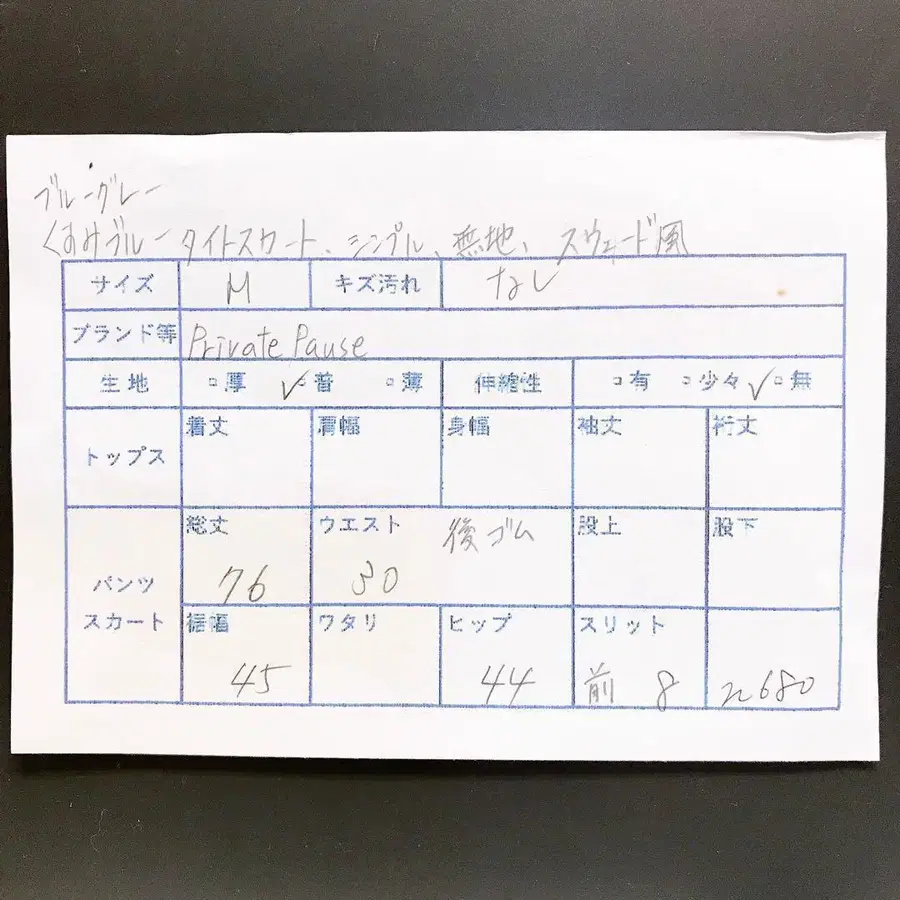 ブルーグレー
くすみブルー タイトスカート、シンプル、無地、スウェード風
サイズ M キズ汚れ なし
ブランド等 Private Pause
生地 □厚 ✓□普 □薄 伸縮性 □有 □少々 ✓□無
トップス 着丈 肩幅 身幅 袖丈 裄丈
パンツ スカート
総丈 ウエスト 後ゴム 股上 股下
76 30
裾幅 ワタリ ヒップ スリット
45 44 前 8 n680